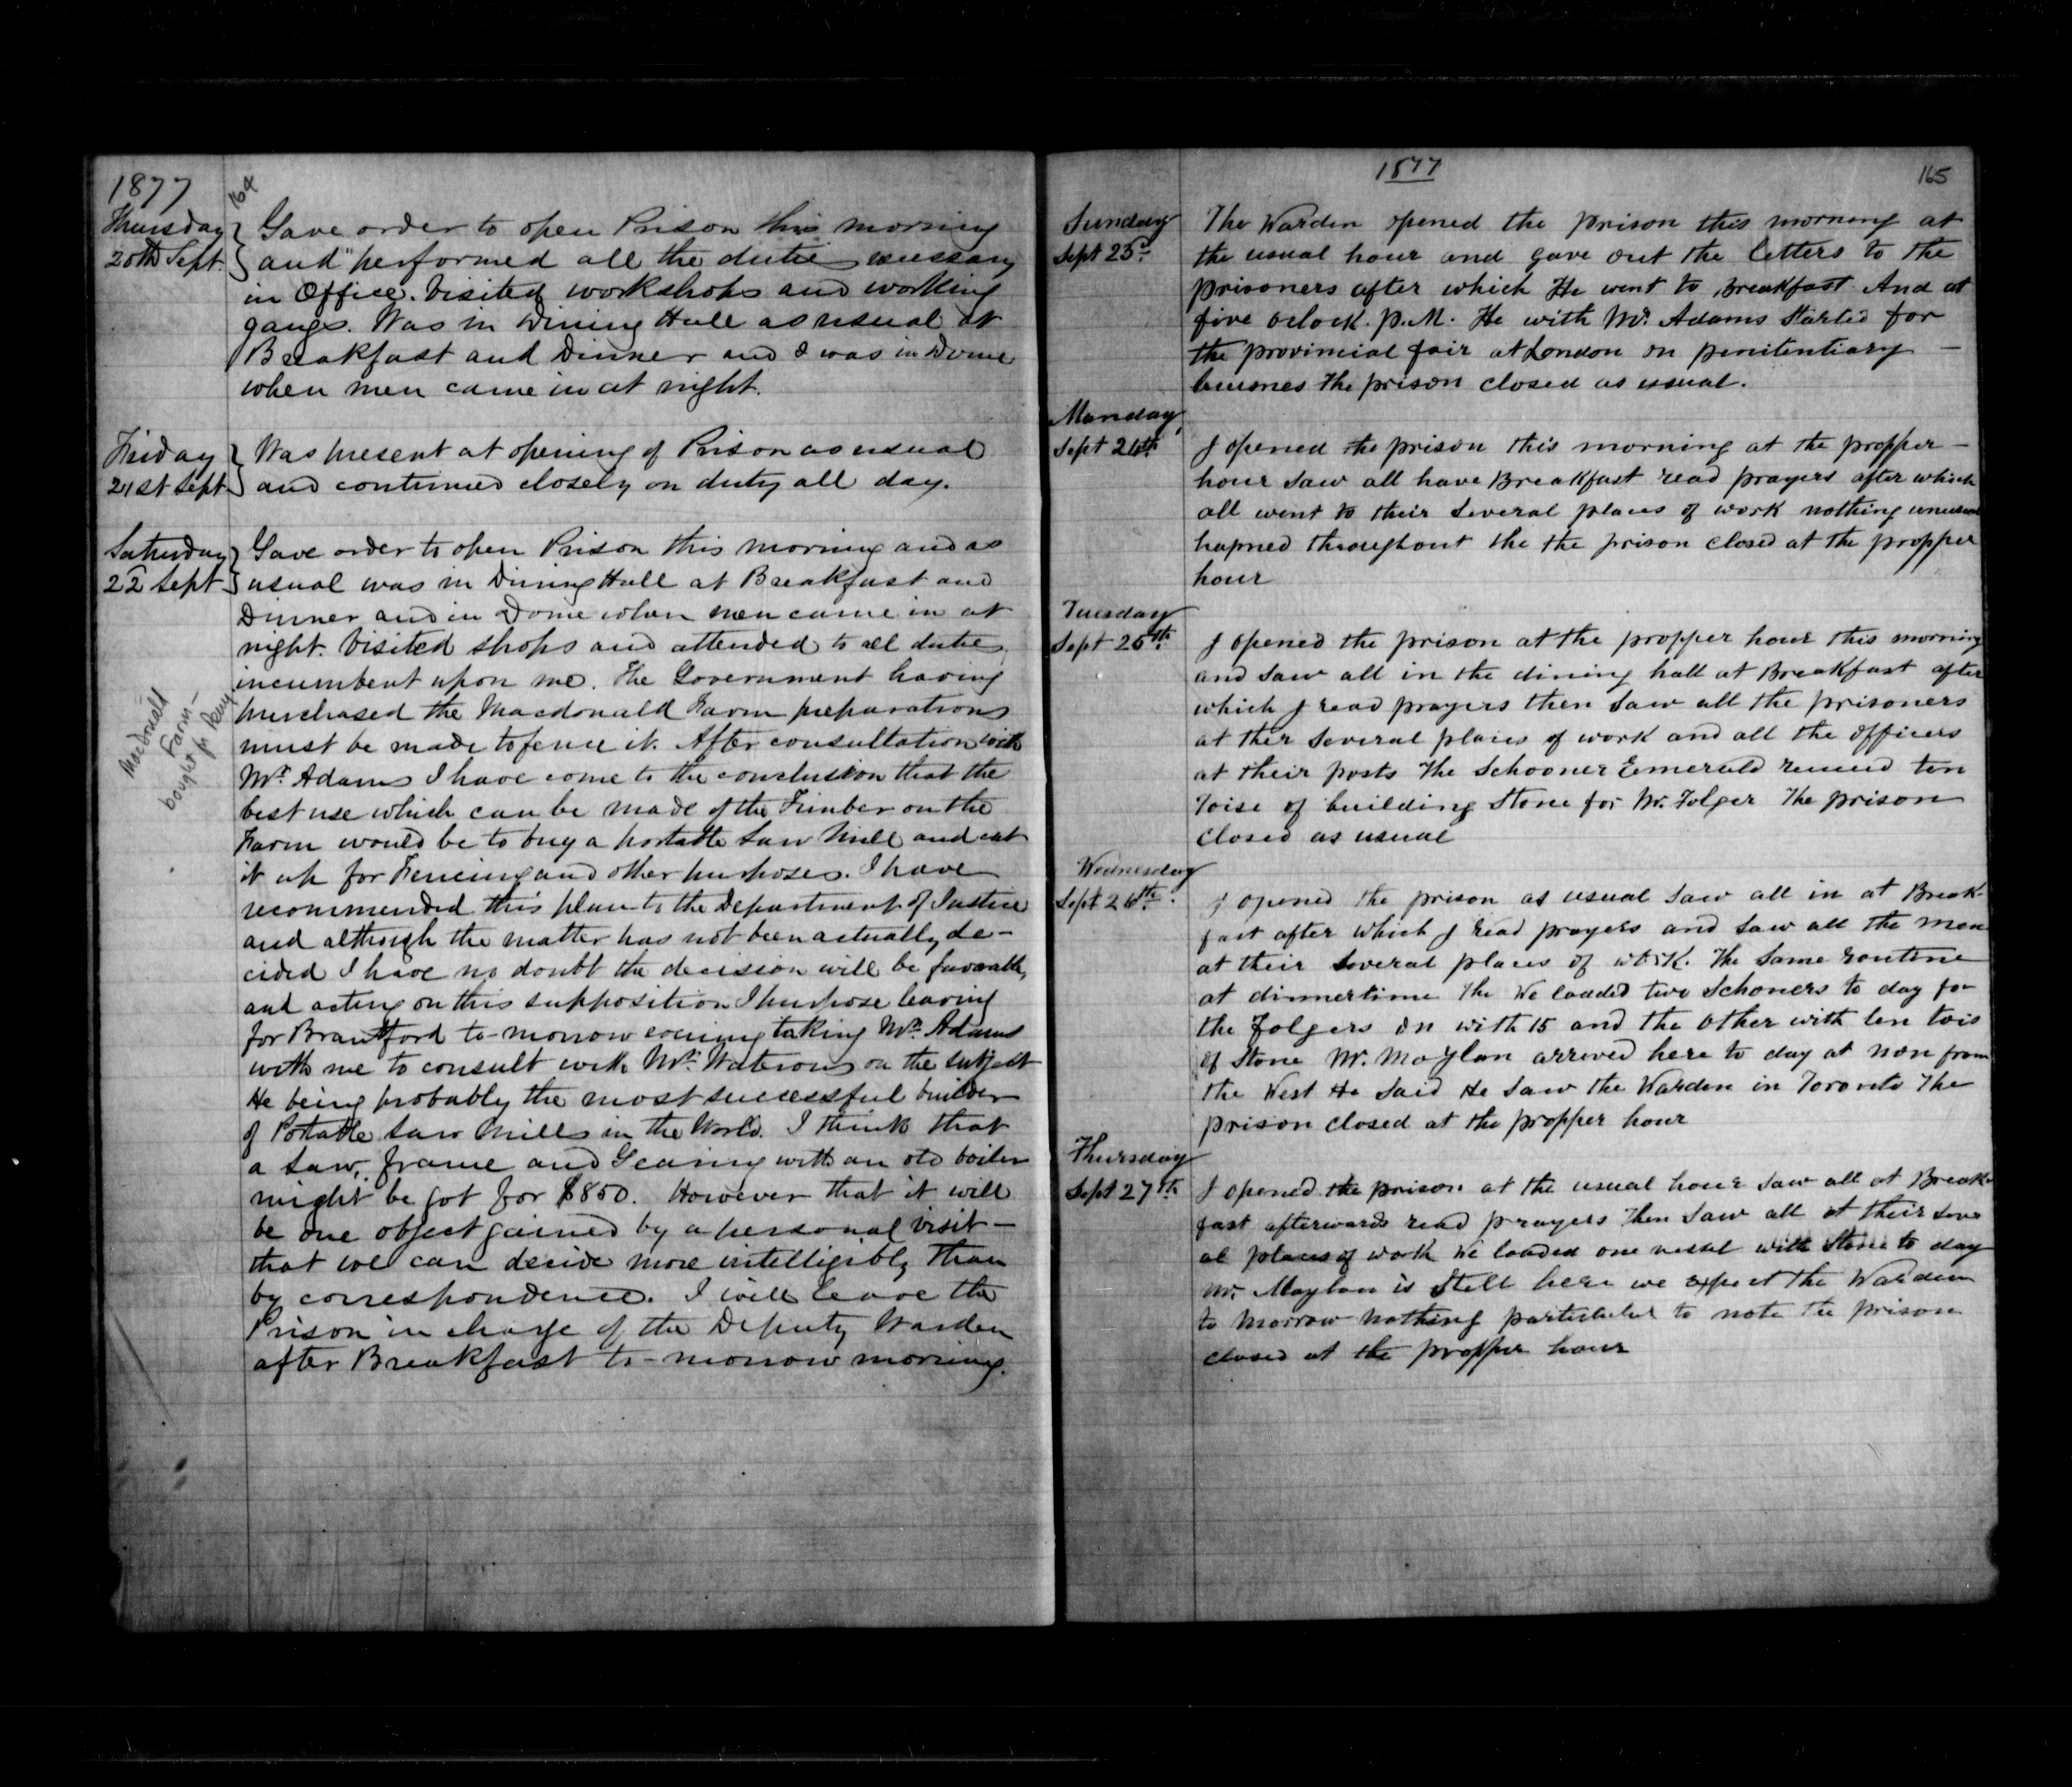 1877
164
Thursday
20th Sept.
Gave order to open Prison this morning
and performed all the dutie necessary
in Office. Visited workshops and working
gangs. Was in Dining Hall as usual at
Breakfast and Dinner and I was in Dome
when men came in at night.
Friday
21st Sept.
Was present at opening of Prison as usual
and continued closely on duty all day.
Saturday
22 Sept
Gave order to open Prison this morning and as
usual was in Dining Hall at Breakfast and
Dinner and in Dome when men came in at
night. Visited shops and attended to all dutie
incumbent upon me. The Government having
purchased the Macdonald Farm preparations
must be made to fence it. After consultation with
Mr. Adams I have come to the conclusion that the
best use which can be made of the Timber on the
Farm would be to buy a portable Saw Mill and cut
it up for Fencing and other purposes. I have
recommended this plan to the Department of Justice
and although the matter has not been actually de-
cided I have no doubt the decision will be favorable,
and acting on this supposition I purpose leaving
for Brantford to-morrow evening taking Mr. Adams
with me to consult with Mr. Waterous on the subject
He being probably the most successful builder
of Potable Saw Mills in the World. I think that
a Saw, frame and Gearing with an old boiler
might be got for $850. However that it will
be one object gained by a personal visit -
that we can decide more intelligibly than
by correspondence. I will leave the
Prison in charge of the Deputy Warden
after Breakfast to-morrow morning.
Macdonald
Farm -
bought for Peny.
1877
165
Sunday
Sept 23d.
The Warden opened the prison this morning at
the usual hour and gave out the letters to the
prisoners after which He went to Breakfast And at
five oclock. P.M. He with Mr. Adams Started for
the provincial fair at London on penitentiary -
buisnes the prison closed as usual.
Monday
Sept 24th
I opened the prison this morning at the propper -
hour saw all have Breakfast read prayers after which
all went to their several places of work nothing unusual
hapned throughout the the prison closed at the propper
hour
Tuesday
Sept 25th.
I opened the prison at the propper hour this morning
and saw all in the dining hall at Breakfast after
which I read prayers then saw all the prisoners
at ther several places of work and all the officers
at their posts The Schooner Emerald ten
Toise of building Stone for Mr. Folger The prison
closed as usual
Wednesday
Sept 26th.
I opened the prison as usual saw all in at Break-
fast after which I read prayers and saw all the men
at their several places of work. The same routine
at dinnertime The We loaded two Schoners to day for
the Folgers on with 15 and the other with ten tois
of Stone Mr. Moylan arrived here to day at non from
the West He said He saw the Warden in Toronto The
prison closed at the propper hour
Thursday
Sept 27th
I opened the prison at the usual hour saw all at Break-
fast afterwards read prayers then saw all at their sever
al places of work We loaded one vessel with Stone to day
Mr. Moylan is Still here we expect the Warden
to morrow nothing to note the prison
closed at the propper hour